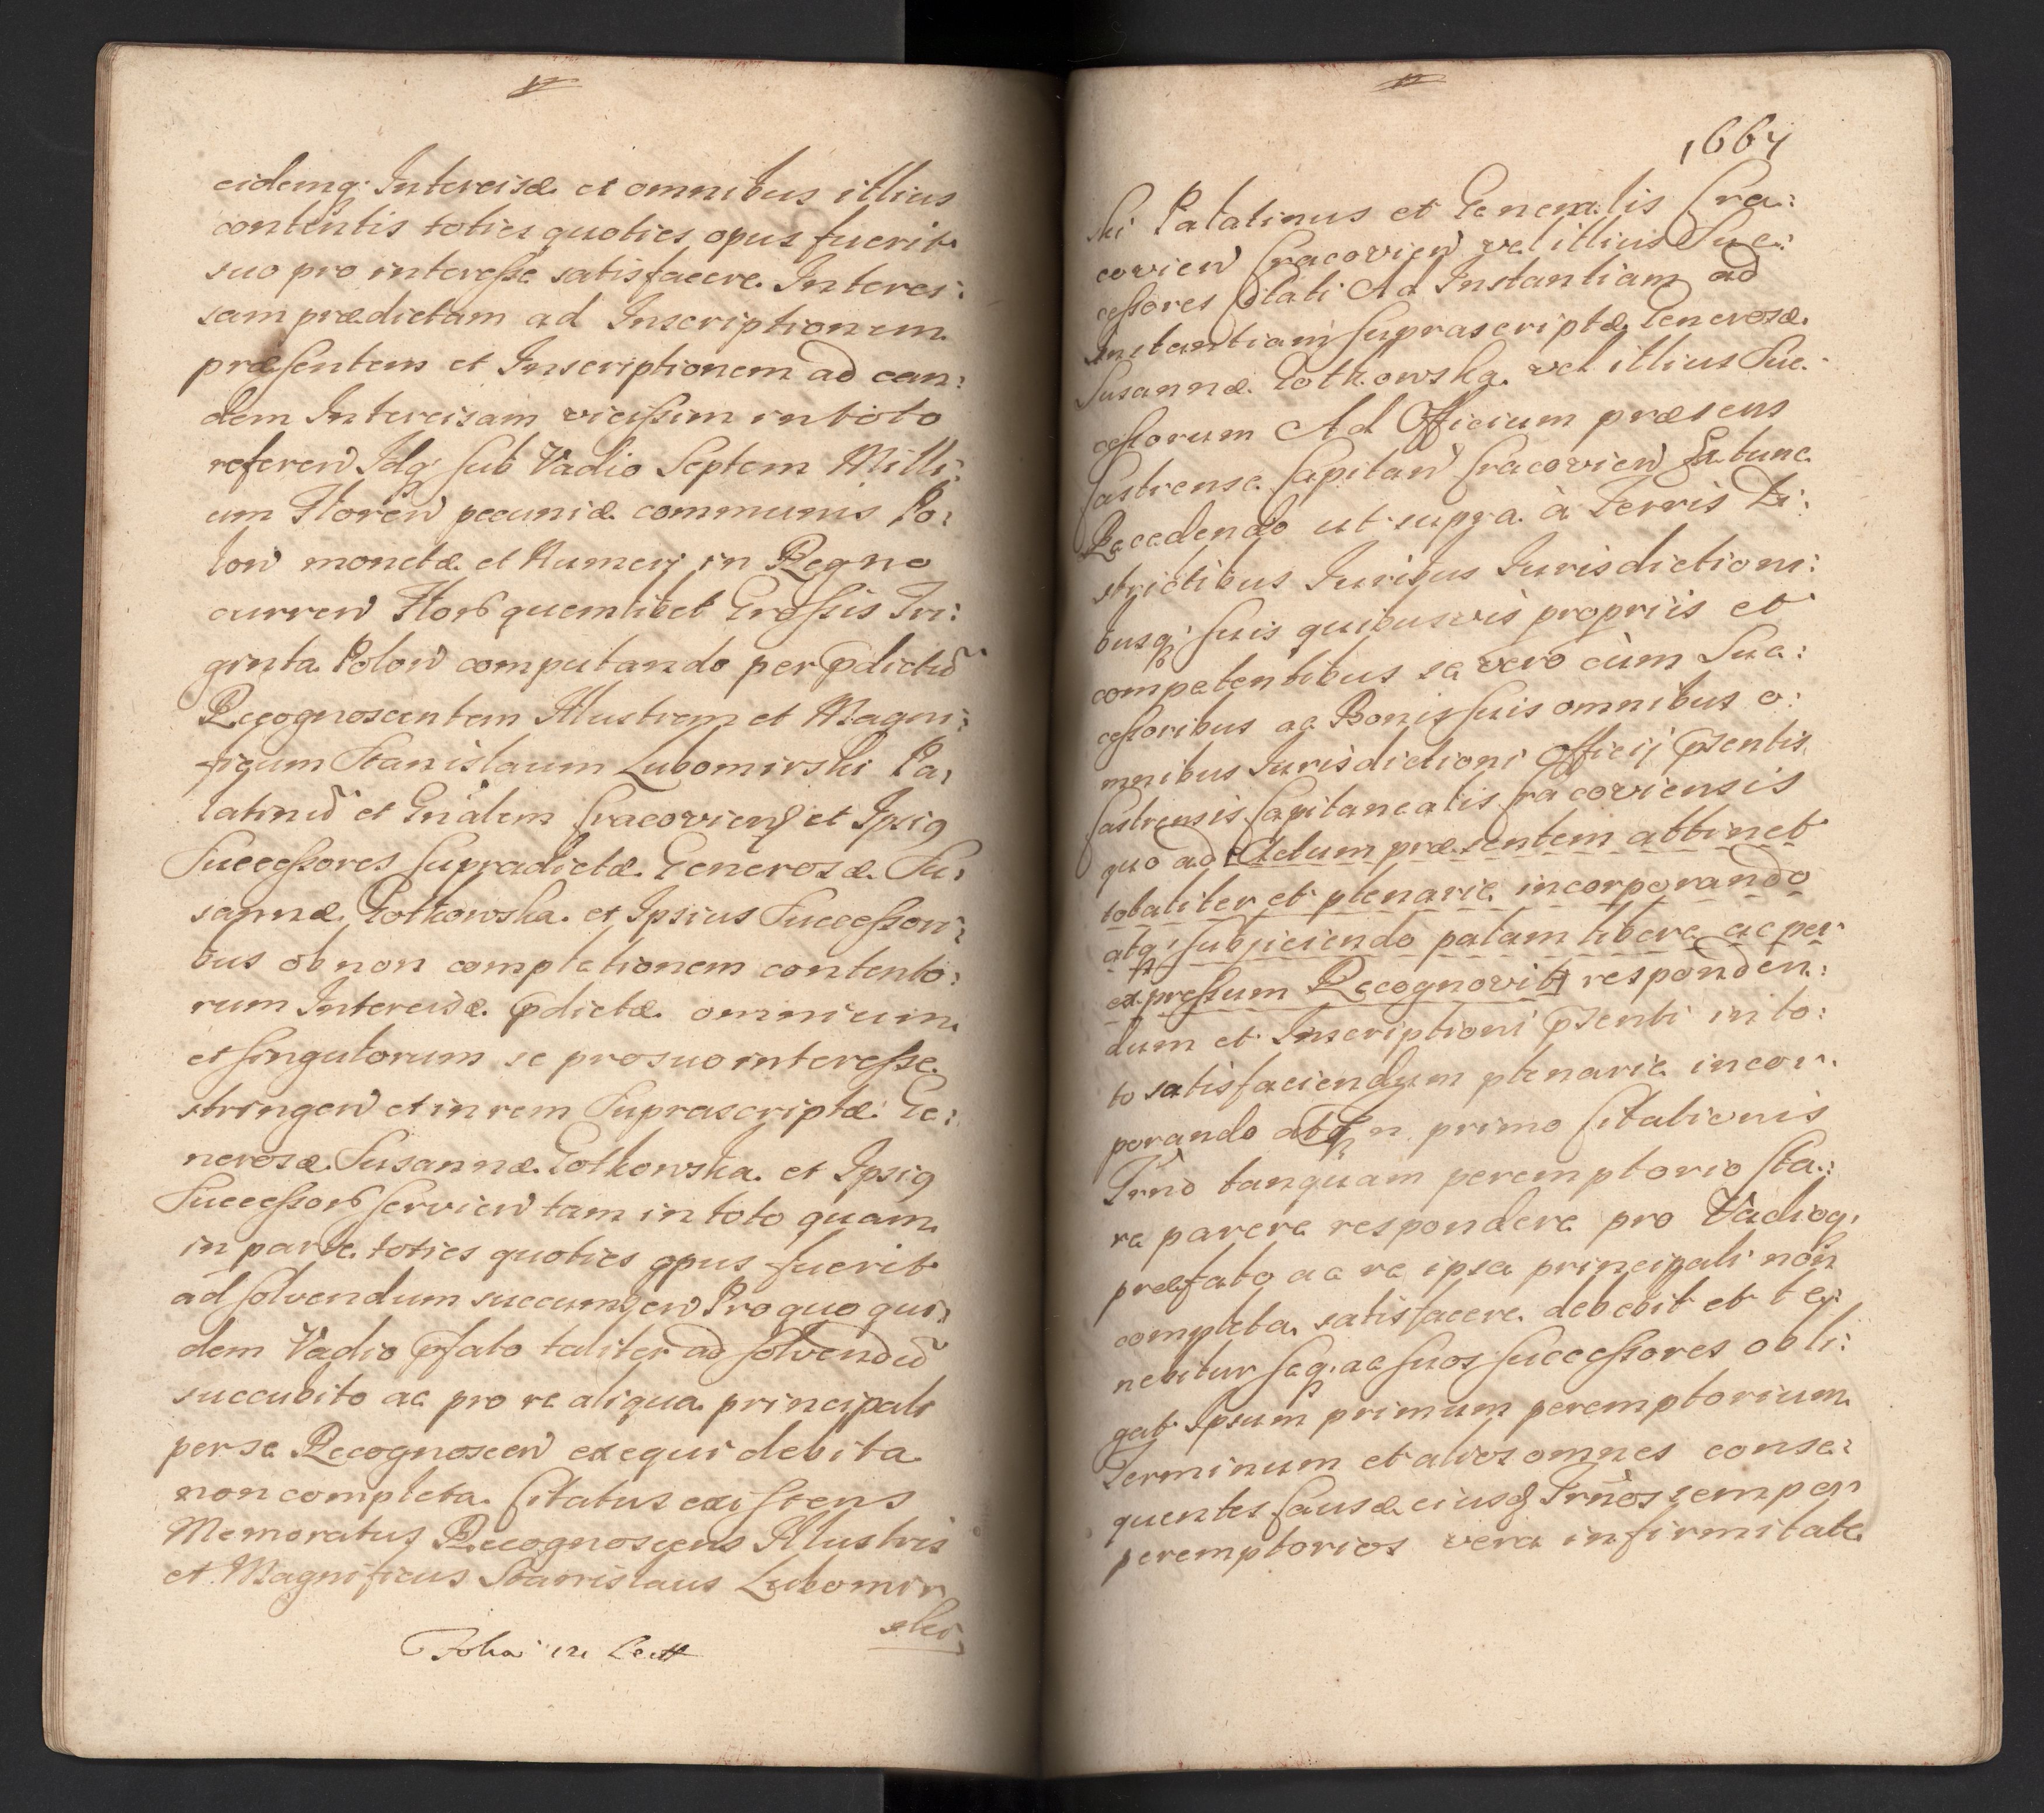 eidemq; Intercisæ et omnibus illius
contentis toties quoties opus fuerit
suo pro interesse satisfacere. Interci:
sam prædictam ad Inscriptionem
præsentem et Inscriptionem ad ean:
dem Intercisam vicissim in toto
referen Idq; sub Vadio Septem Milli:
um Floren pecuniæ communis Po:
lon monetæ et Numeri in Regno
curren Flor quemlibet Grossis Tri:
ginta Polon computando per pdictũ
Recognoscentem Illustrem et Magni:
ficum Stanislaum Lubomirski Pa:
latinũ et Gnãlem Cracovien et Ipsiq
Successores supradictæ Generosæ Su:
sannæ Gotkowska et Ipsius Successori:
bus ob non completionem contento:
rum Intercisæ pdictæ omnium
et singulorum se pro suo interesse
stringen et in rem Suprascriptæ Ge:
nerosæ Susannæ Gotkowska et Ipsiq
Successor servien tam in toto quam
in parte toties quoties opus fuerit
ad solvendum succumben Pro quo qui:
dem Vadio pfato taliter ad solvendũ
succubito ac pro re aliqua principali
per se Recognoscen exequi debita
non completa Citatus existens
Memoratus Recognoscens Illustris
et Magnificus Stanislaus Lubomir
ski
1667
ski Palatinus et Generalis Cra:
covien Cracovien vel illius Suc:
cessores Citati Ad Instantiam ad
Instantiam suprascriptæ Generosæ
Susannæ Gotkowska vel illius Suc:
cessorum Ad Officium præsens
Castrense Capitan Cracovien Extunc
Recedendo ut supra à Terris Di:
strictibus Iuribus Iurisdictioni:
busq; suis quibusvis propriis et
competentibus se vero cùm Suc:
cessoribus ac Bonis suis omnibus o:
mnibus Iurisdictioni Officij psentis
Castrensis Capitanealis Cracoviensis
quo ad Actum præsentem attinet
totaliter et plenarie incorporando
atq; subijciendo palam libere ac per
expressum Recognovit responden:
dum et Inscriptioni psenti in to:
to satisfaciendum plenarie incor:
porando atq; in primo Citationis
Trno tanquam peremptorio Sta:
re parere respondere pro Vadioq;
præfato ac re ipsa principali non
completa satisfacere debebit et te:
nebitur seq; ac suos successores obli:
gat Ipsum primum peremptorium
Terminum et alios omnes conse:
quentes Causæ eiusd Trnos semper
peremptorios vera infirmitate